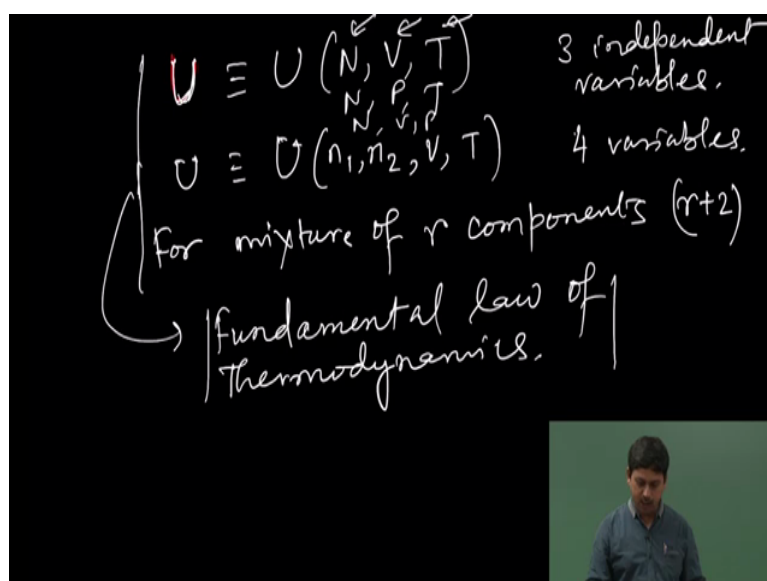 U ≡ U (N, V, T)
3 independent
variables.
N, P, T
N, V, P
U ≡ U (n₁, n₂, V, T)
4 variables.
For mixture of r components (r+2)
Fundamental law of
Thermodynamics.